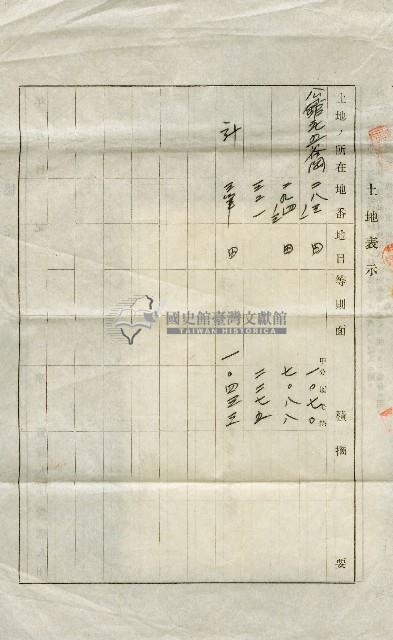 土地表示
土地ノ所在地番地目等則面積摘要
公館庄五谷岡 二八三ノ一 田 一〇七〇
田 七〇八八
三二一 二二七五
計 三筆 田 一〇四三三
國史館臺灣文獻館
TAIWAN HISTORICA